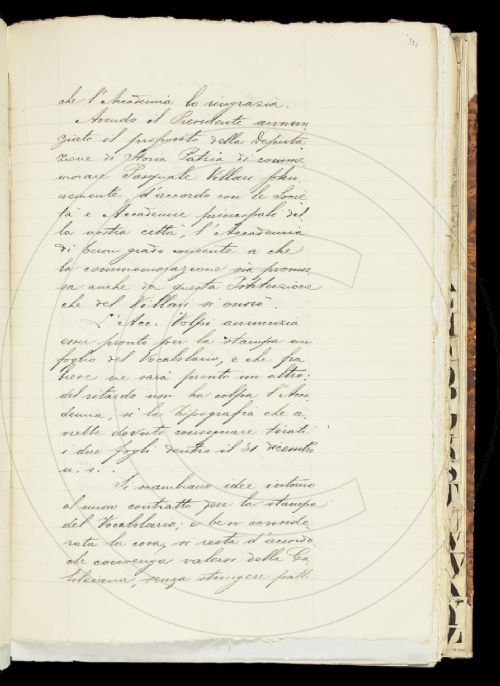 che l'Accademia lo ringrazia.
Avendo il Presidente annun
ziato il proposito della Deputa
zione di Storia Patria di comme
morare Pasquale Villari solen
nemente, d'accordo con le Socie
tà e Accademie principali del
la nostra città l'Accademia
di buon grado consente a che
la commemorazione sia promos
sa anche da questa Istituzione
che del Villari si onorò.
L'Acc. Volpi annunzia
esser pronto per la stampa un
foglio del Vocabolario, e che fra
breve ne sarà pronto un altro:
del ritardo non ha colpa l'Acca
demia, sì la Tipografia che a-
vrebbe dovuto consegnare tirati
i due fogli dentro il 31 dicembre
u. s.
Si scambiano idee intorno
al nuovo contratto per la stampa
del Vocabolario; e ben conside
rata la cosa, si resta d'accordo
che convenga valersi della Ga
lileiana, senza stringere patti